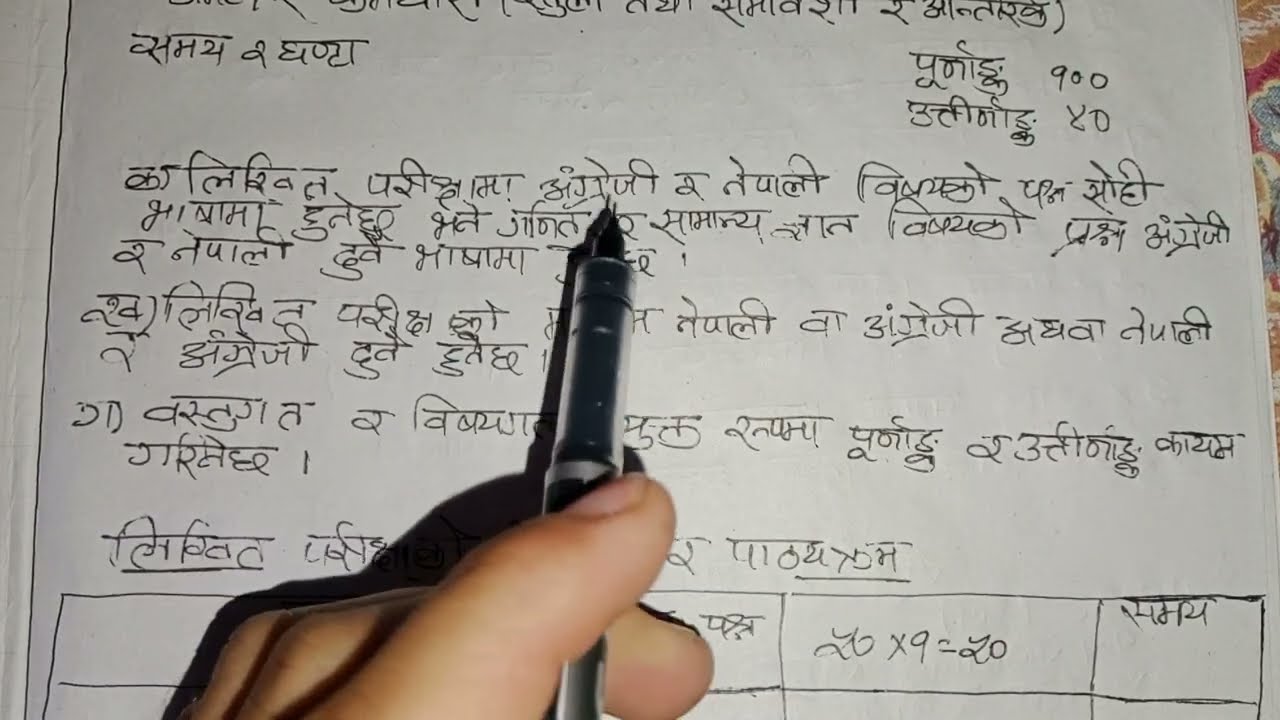 कर्मचारी (खुला तथा समावेशी र आन्तरिक)
समय २ घण्टा
पूर्नाङ्क १००
उत्तीर्नाङ्क ४०
क) लिखित परीक्षामा अंग्रेजी र नेपाली विषयको प्रश्न सोही
भाषामा हुनेछ भने गनित र सामान्य ज्ञान विषयको प्रश्न अंग्रेजी
र नेपाली दुवै भाषामा
ख) लिखित परीक्षको नेपाली वा अंग्रेजी अथवा नेपाली
र अंग्रेजी दुवै हुनेछ ।
ग) वस्तुगत र विषयगत रुपमा पूर्नाङ्क र उत्तीर्नाङ्क कायम
गरिनेछ ।
लिखित परीक्षाको र पाठ्यक्रम
प्रश्न ५० X १ = ५० समय